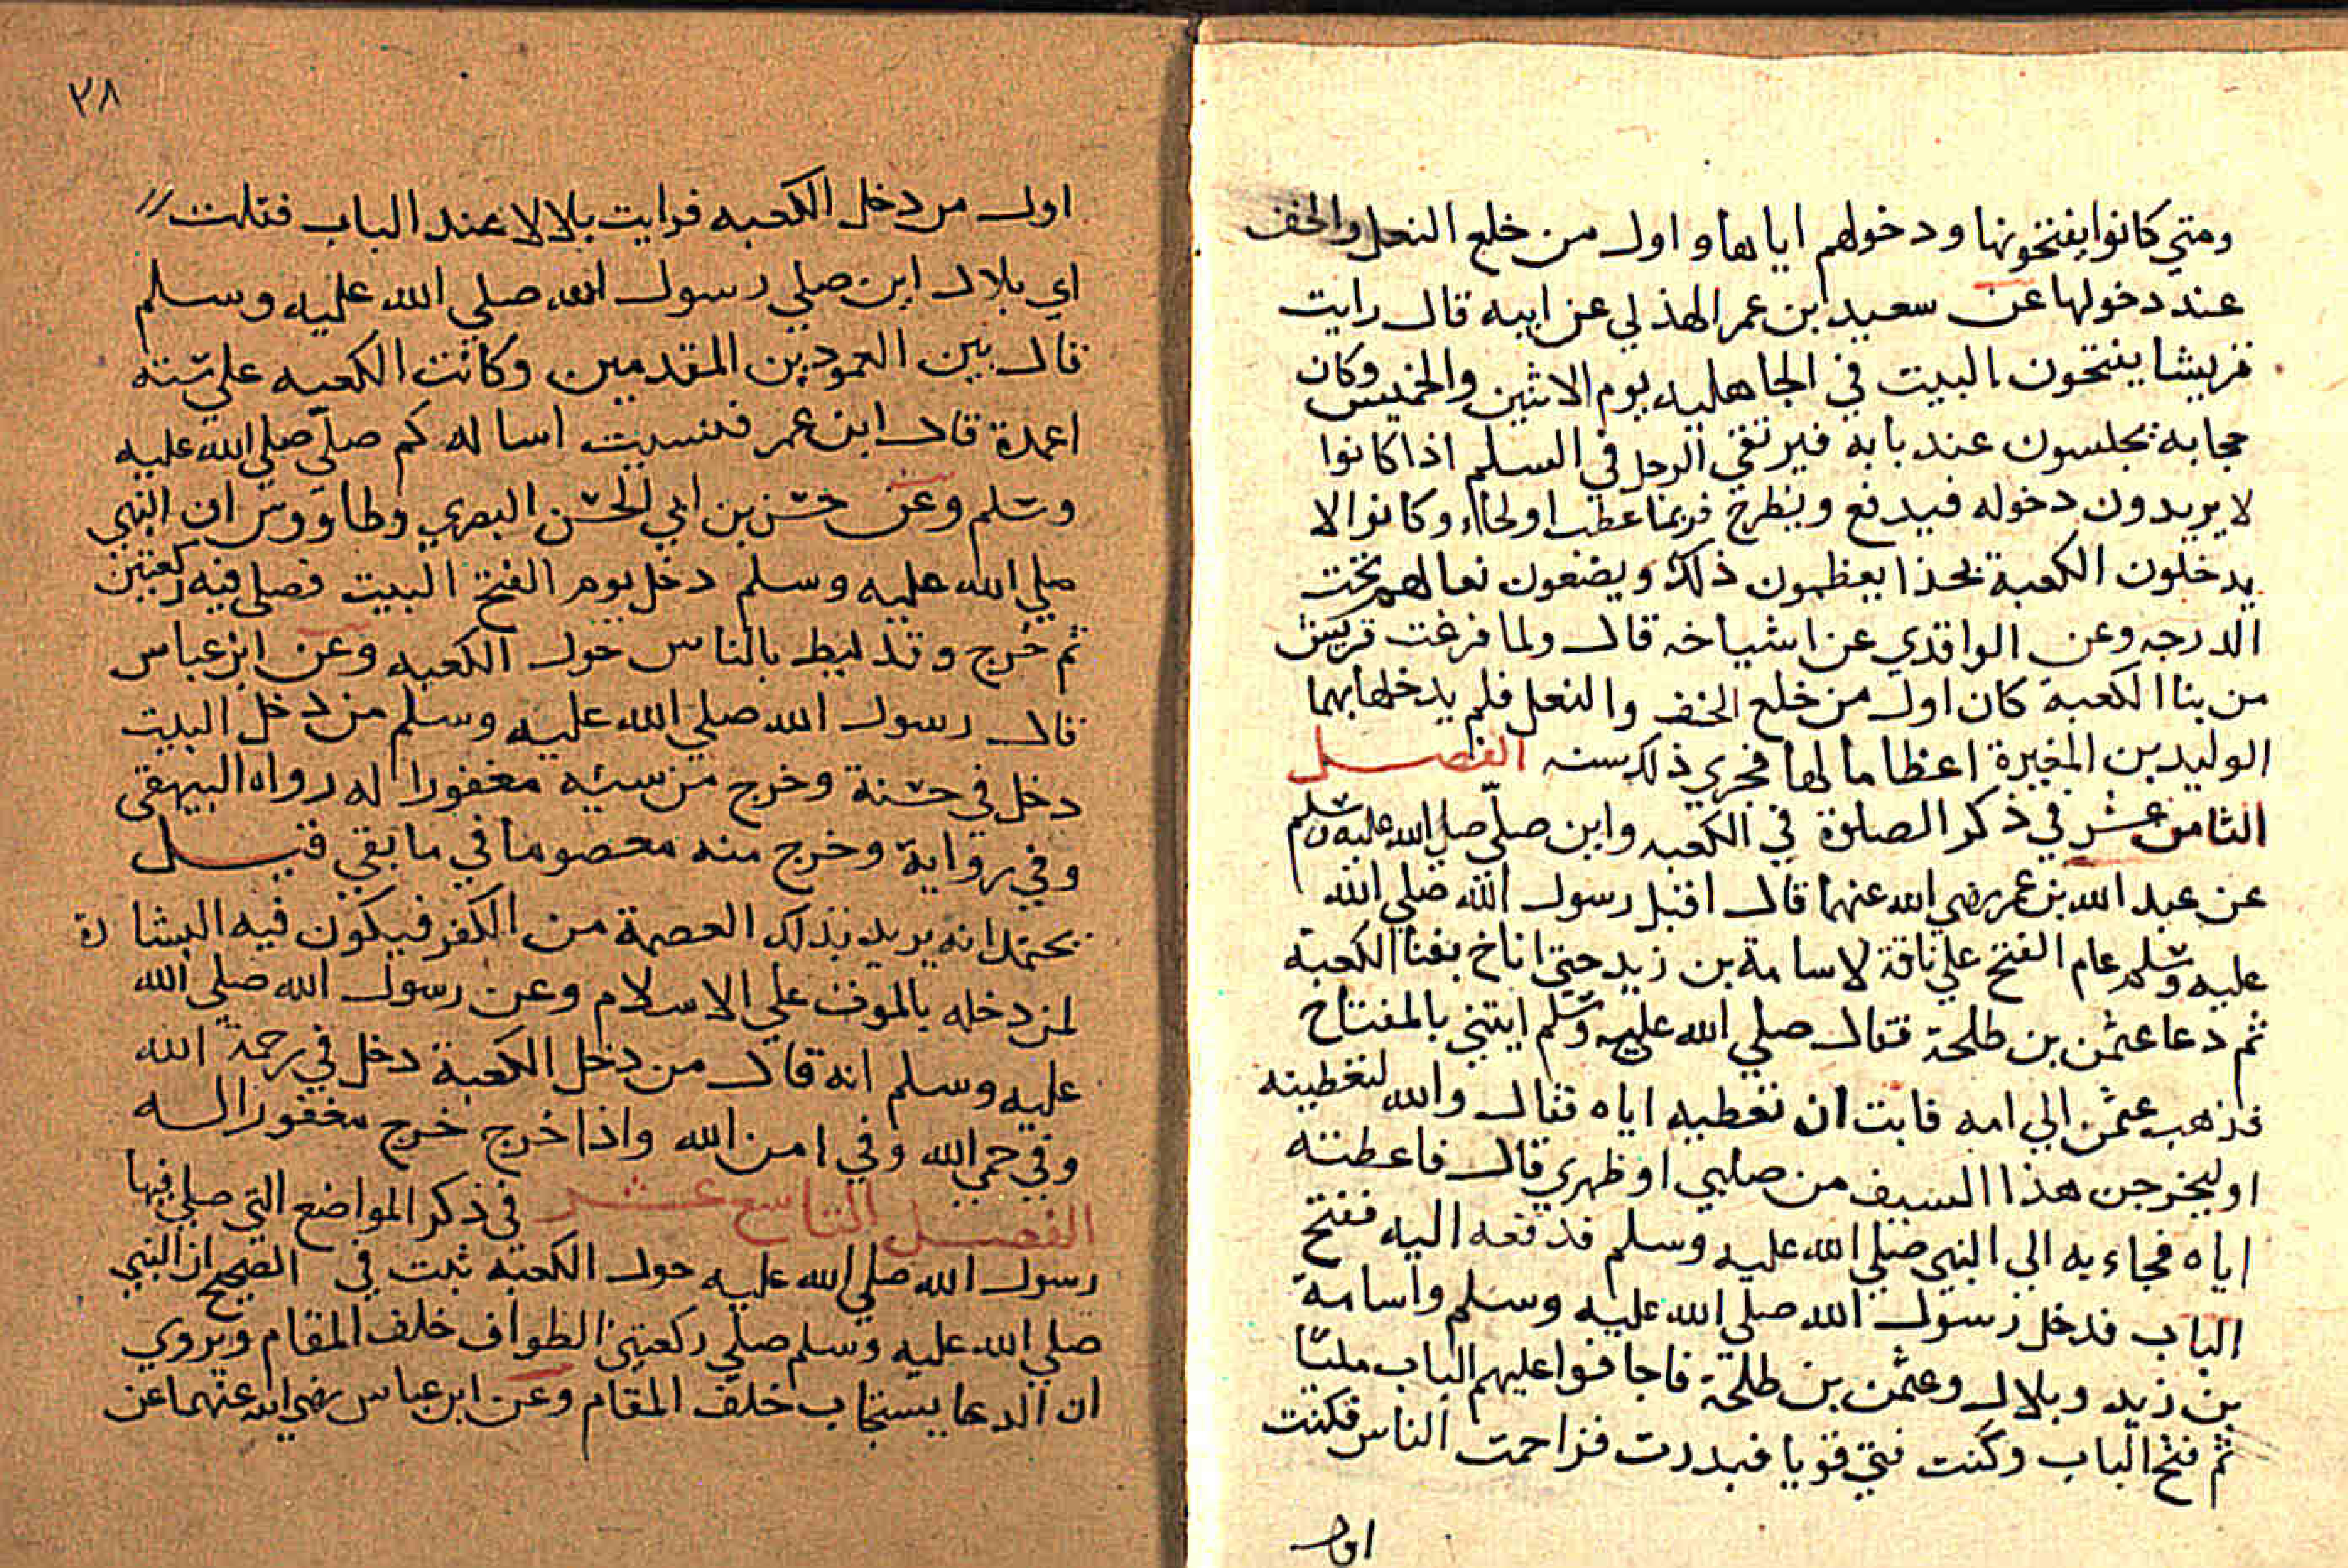 ومتي كانوا يفتحونها ودخولهم اياها واول من خلع النعل والخف
عند دخولها عن سعيد بن عمر الهذلي عن ابيه قال رايت
قريشا يفتحون البيت في الجاهليه يوم الاثنين والخميس وكان
حجابه يجلسون عند بابه فيرتقي الرجل في السلم اذا كانوا
لا يريدون دخوله فيدفع ويطرح فربما عطب اولحاء وكانوا لا
يدخلون الكعبة بحذا يعظمون ذلك ويضعون نعالهم تحت
الدرجه وعن الواقدي عن اشياخه قال ولما فرغت قريش
من بنا الكعبة كان اول من خلع الخف والنعل فلم يدخلها بهما
الوليد بن المغيرة اعظاما لها فجري ذلك سنه الفصل
الثامن عشر في ذكر الصلاة في الكعبه واين صلّي صلي الله عليه وسلم
عن عبد الله بن عمر رضي الله عنهما قال اقبل رسول الله صلي الله
عليه وسلم عام الفتح علي ناقة لاسامة بن زيد حتي اناخ بفنا الكعبة
ثم دعا عثمن بن طلحة فقال صلي الله عليه وسلم ايتني بالمفتاح
فذهب عثمن الي امه فابت ان تعطيه اياه فقال والله لتعطينه
اوليخرجن هذا السيف من صلبي او ظهري قال فاعطته
اياه فجاء به الي النبي صلي الله عليه وسلم فدفعه اليه ففتح
الباب فدخل رسول الله صلي الله عليه وسلم واسامة
بن زيد وبلال وعثمن بن طلحة فاجافوا عليهم الباب مليّا
ثم فتح الباب وكنت فتي قويا فبدرت فزاحمت الناس فكنت
اول
٢٨
اول من دخل الكعبه فرايت بلالا عند الباب فقلت
اي بلال اين صلي رسول الله صلي الله عليه وسلم
قال بين العمودين المقدمين وكانت الكعبه علي ستة
اعمدة قال ابن عمر فنسيت اساله كم صلّي صلي الله عليه
وسلم وعن حسن بن ابي الحسن البصري وطاووس ان النبي
صلي الله عليه وسلم دخل يوم الفتح البيت فصلي فيه ركعتين
ثم خرج وقد لبط بالناس حول الكعبه وعن ابن عباس
قال رسول الله صلي الله عليه وسلم من دخل البيت
دخل في حسنة وخرج من سيئه مغفورا له رواه البيهقي
وفي رواية وخرج منه معصوما في ما بقي قيل
يحتمل انه يريد بذلك العصمة من الكفر فيكون فيه البشارة
لمن دخله بالموت علي الاسلام وعن رسول الله صلي الله
عليه وسلم انه قال من دخل الكعبة دخل في رحمة الله
وفي حمي الله وفي امن الله واذا خرج خرج مغفورا له
الفصل التاسع عشر في ذكر المواضع التي صلي فيها
رسول الله صلي الله عليه حول الكعبه ثبت في الصحيح ان النبي
صلي الله عليه وسلم صلي ركعتي الطواف خلف المقام ويروي
ان الدعا يستجاب خلف المقام وعن ابن عباس رضي الله عنهما عن